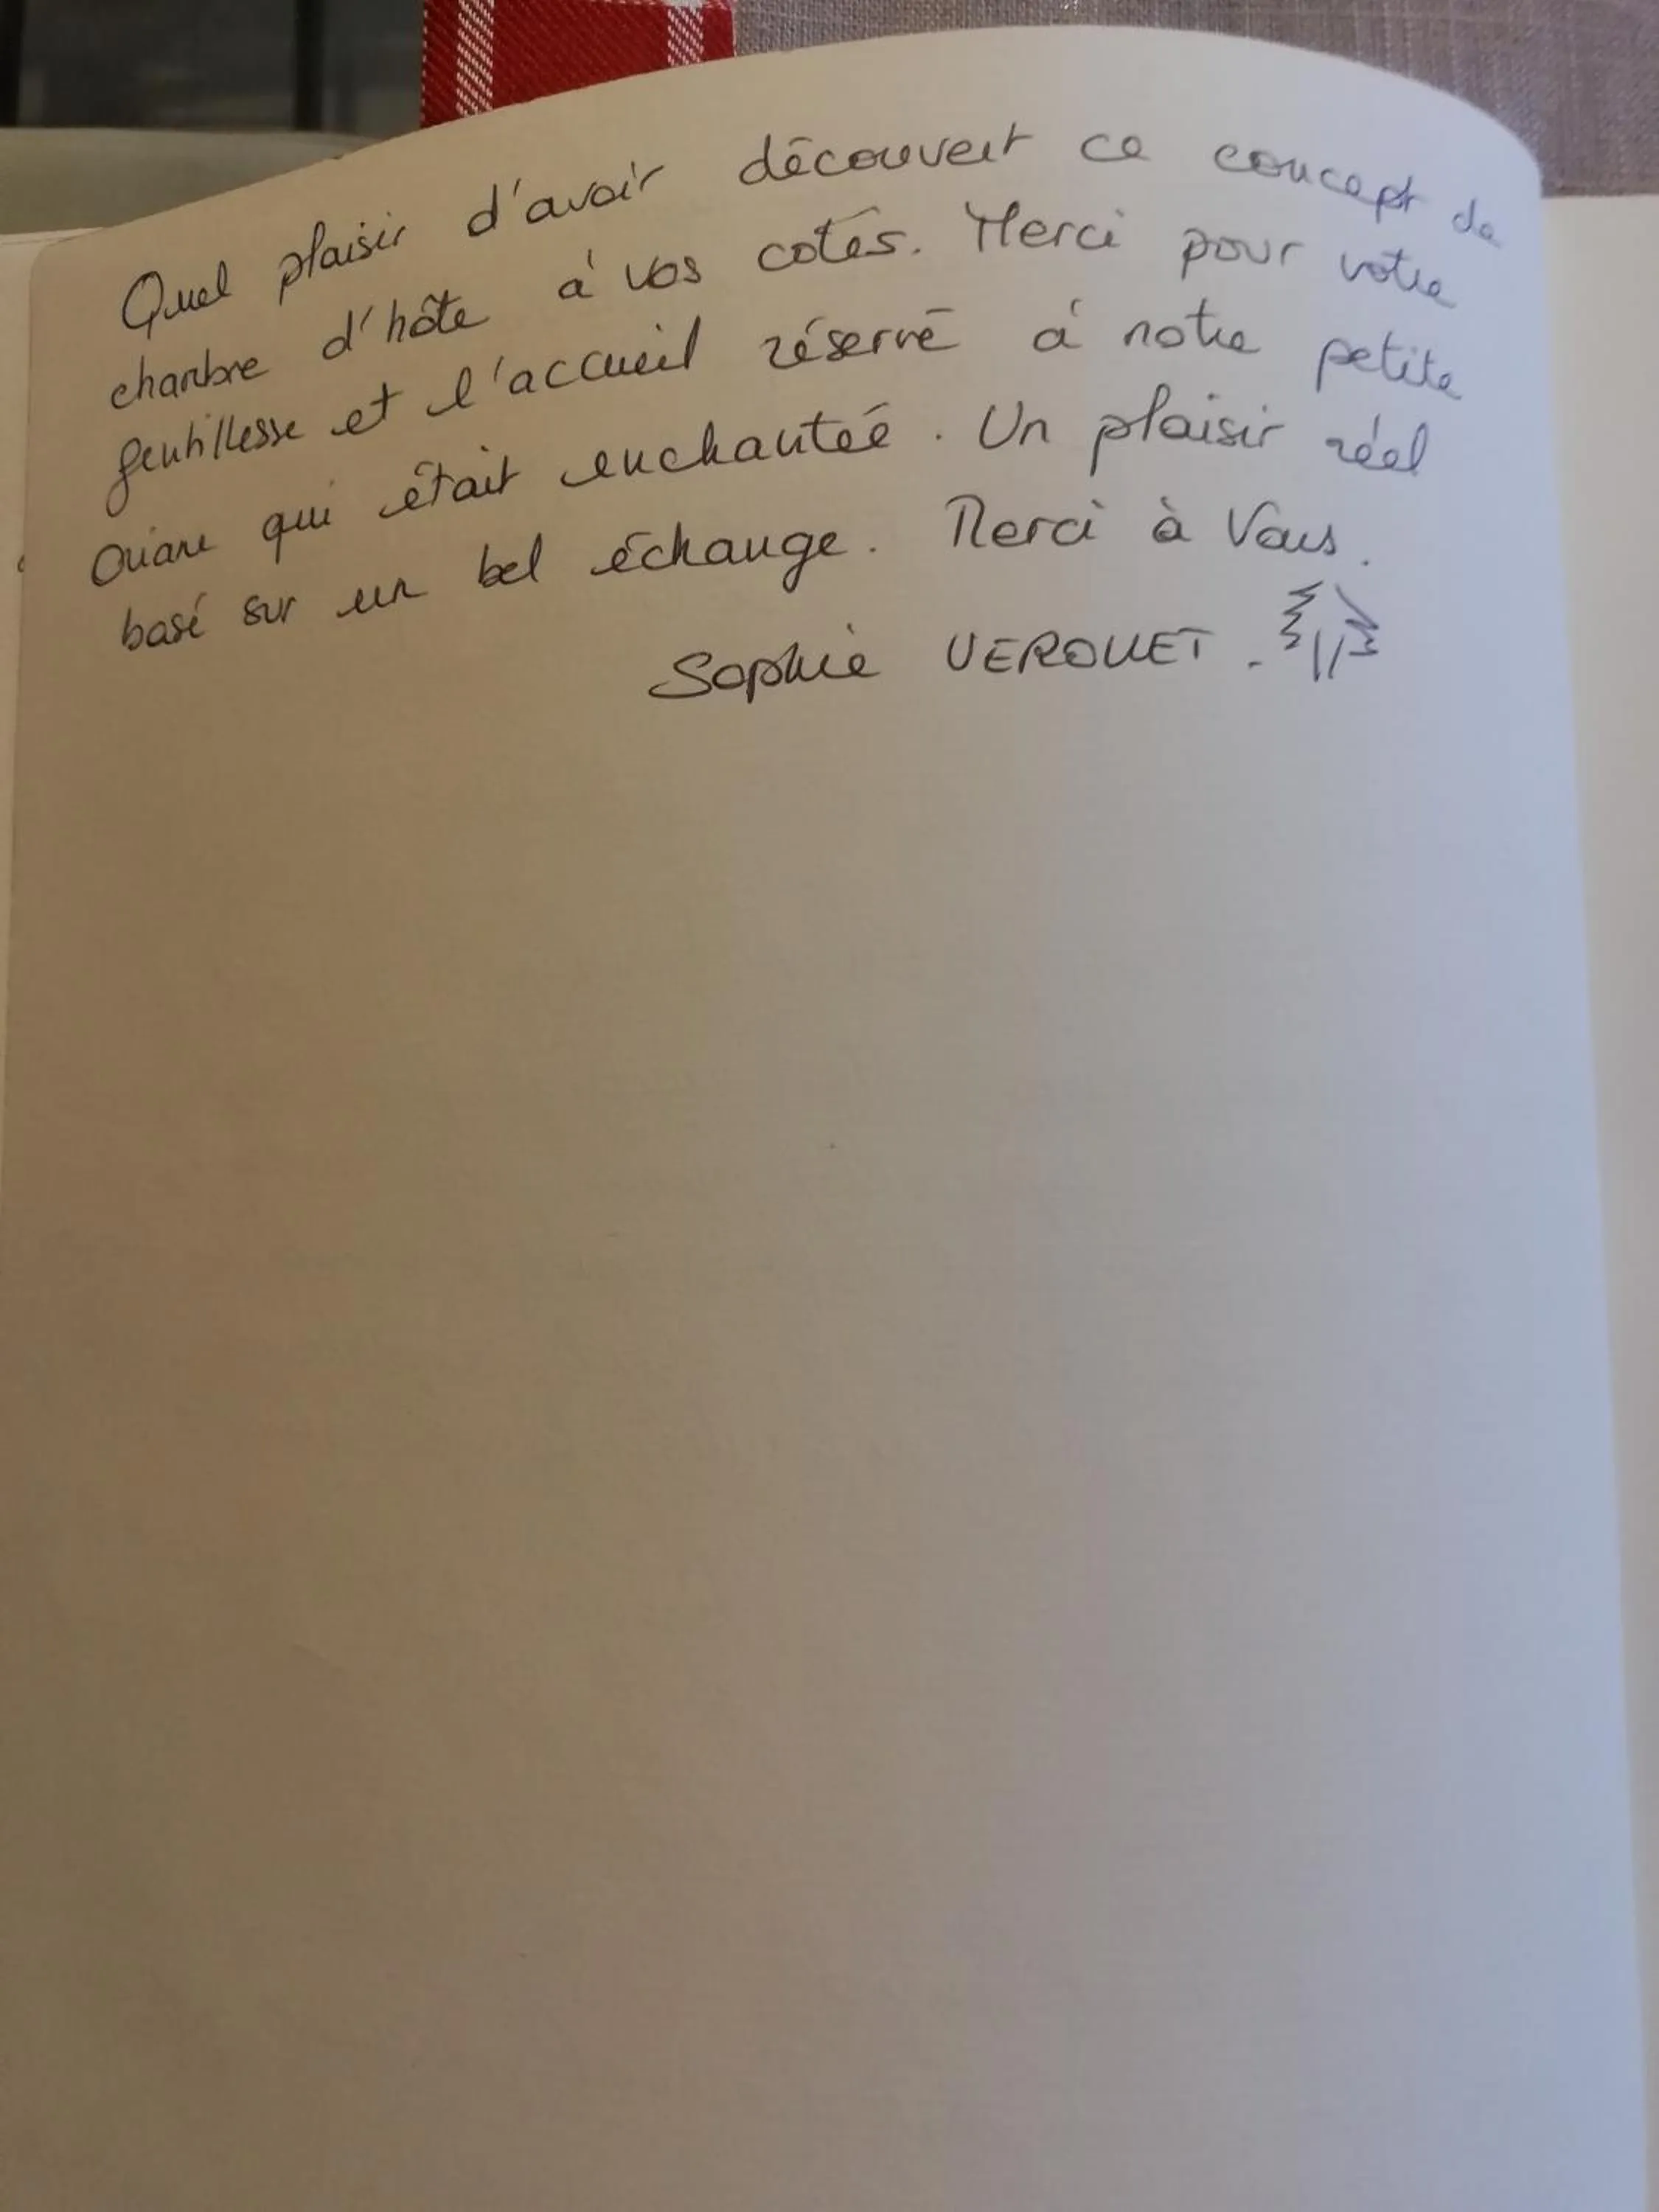 Quel plaisir d'avoir découvert ce concept de
chambre d'hôte à vos cotés. Merci pour votre
gentillesse et l'accueil réservé à notre petite
qui était enchantée. Un plaisir réel
basé sur un bel échange. Merci à Vous.
Sophie VEROUET.